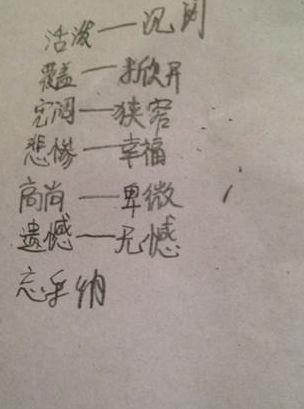 活泼——沉闷
覆盖——掀开
宽阔——狭窄
悲惨——幸福
高尚——卑微
遗憾——无憾
忘乎